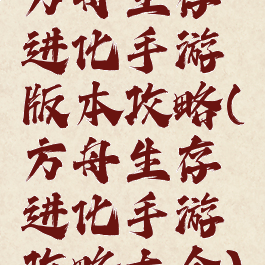 方舟生存
进化手游
版本攻略(
方舟生存
进化手游
攻略大全)